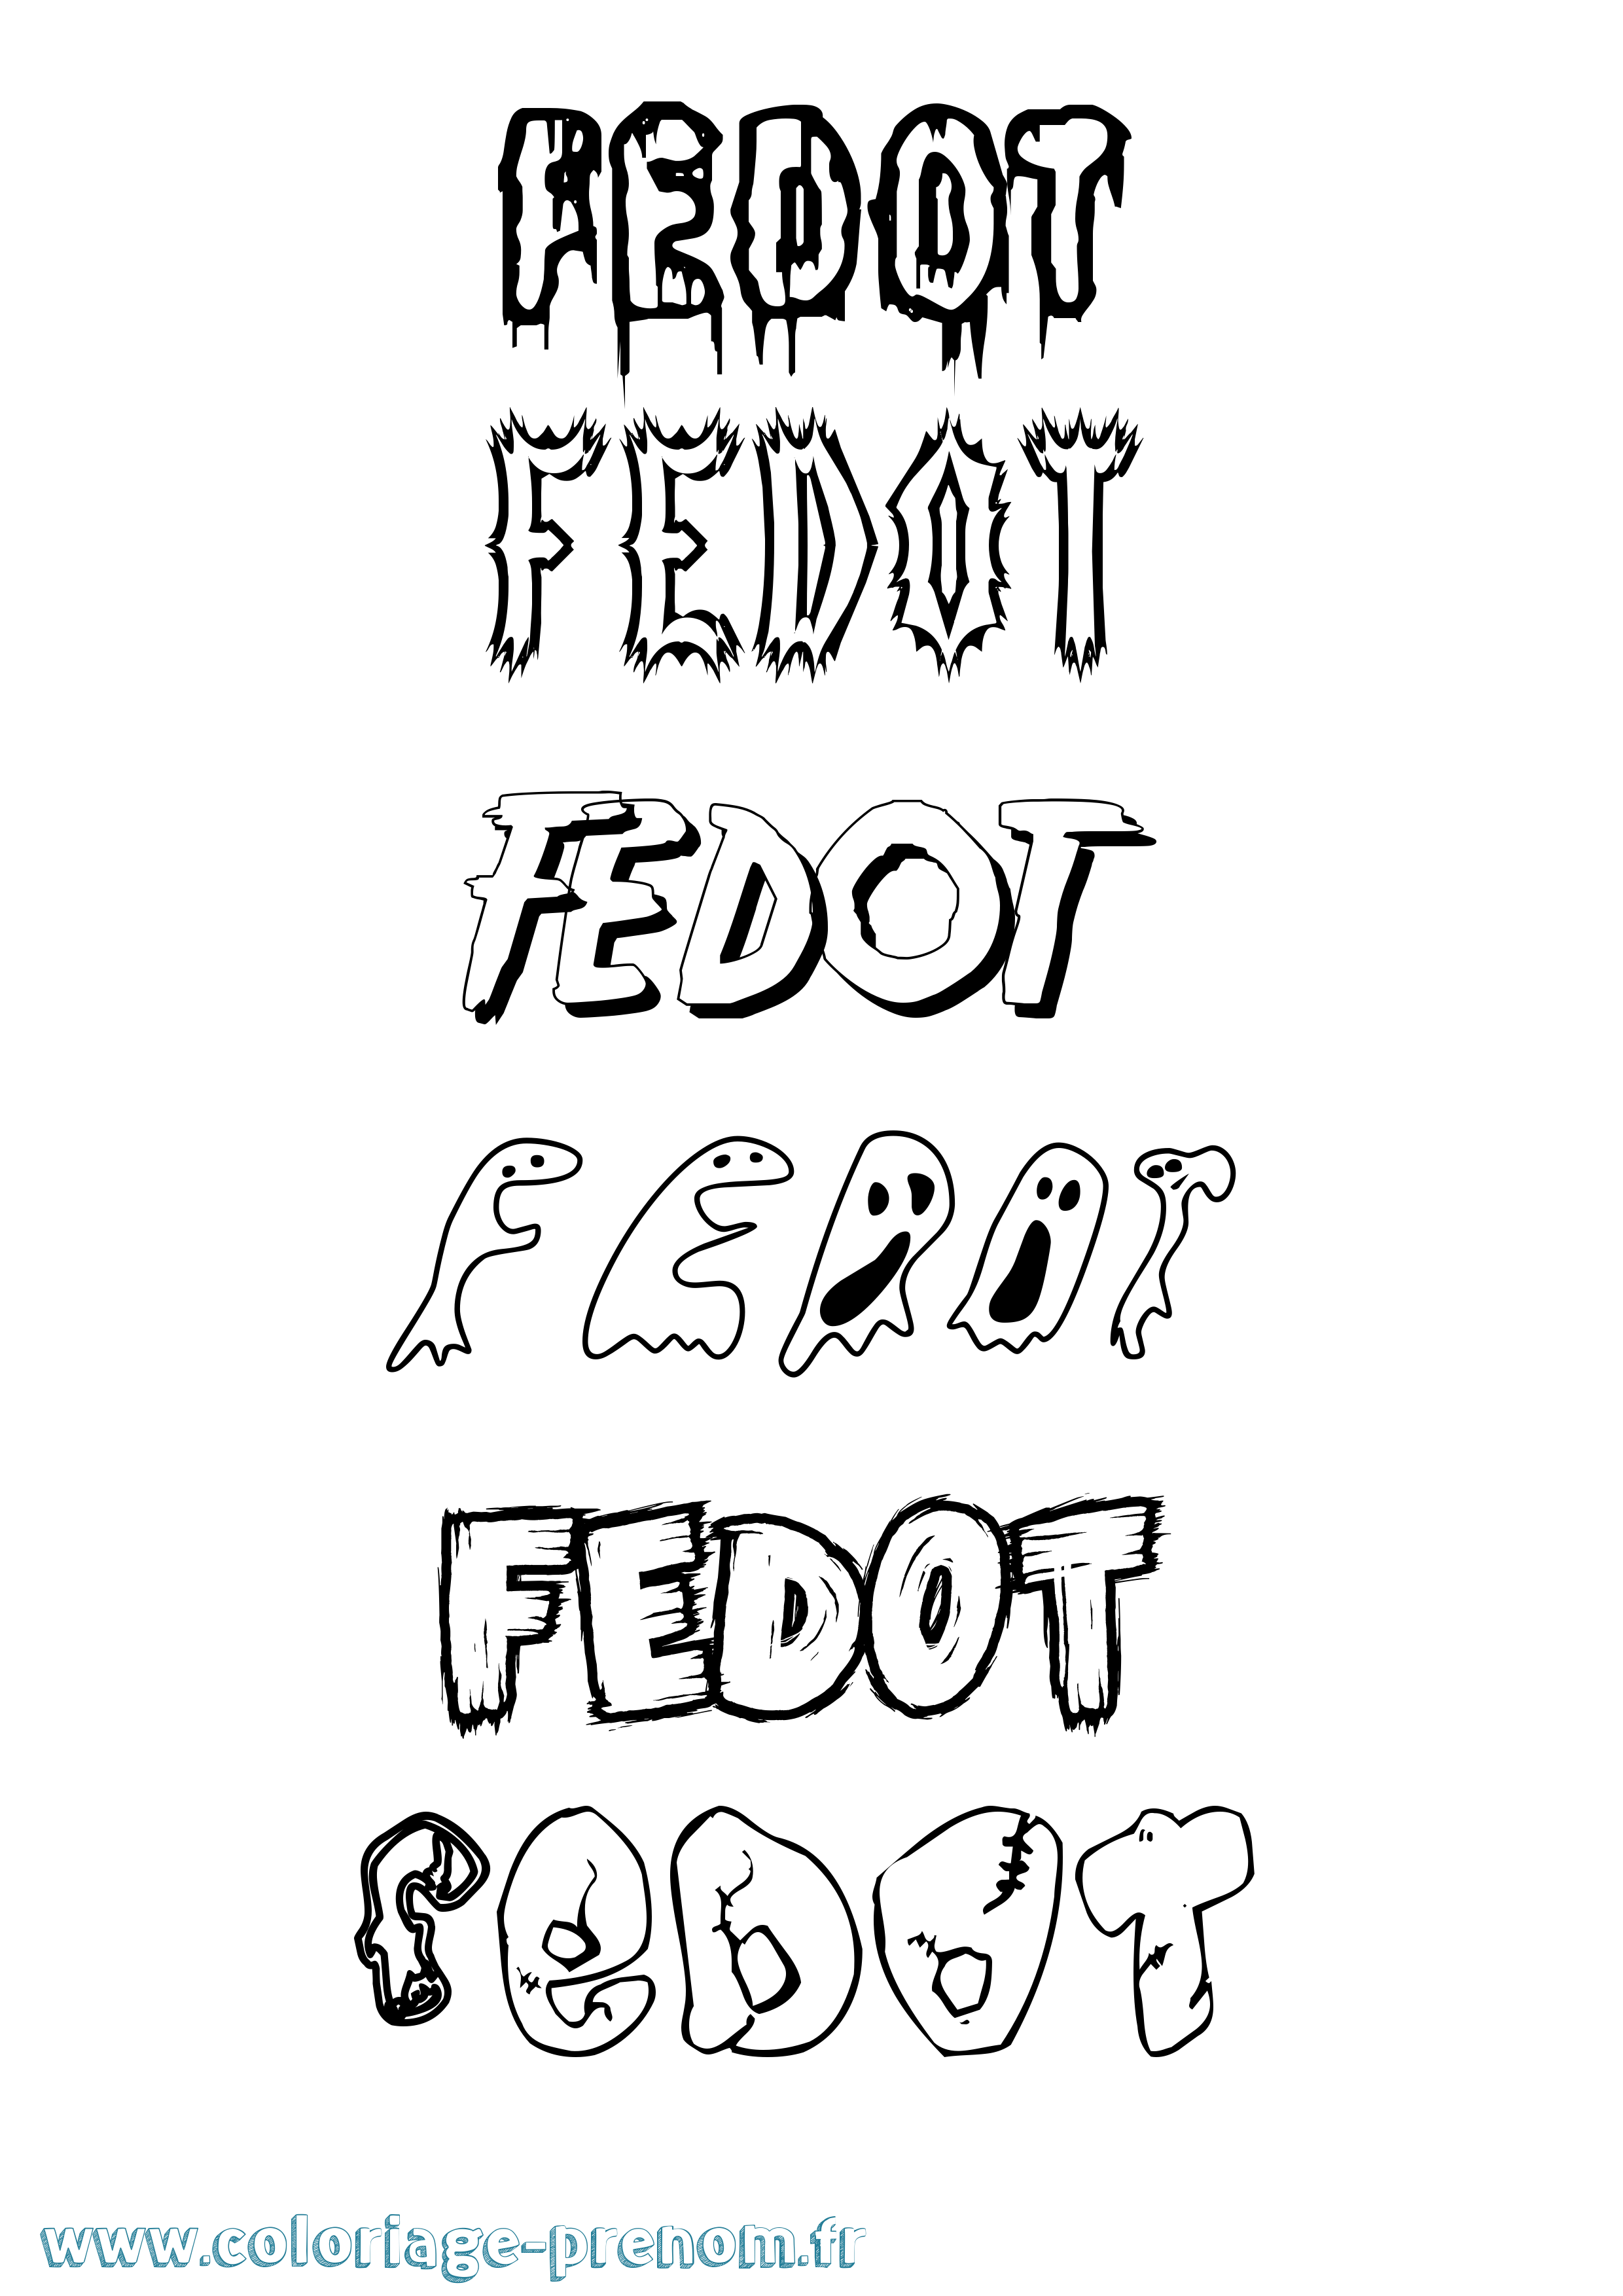 FEDOT
FEDOT
FEDOT
FEDOT
FEDOT
FeDOT
www.coloriage-prenom.fr